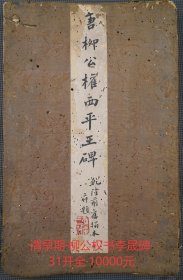 唐柳公权西平王碑
乾隆前旧拓本
清早期 柳公权书李晟碑
31开全 10000元